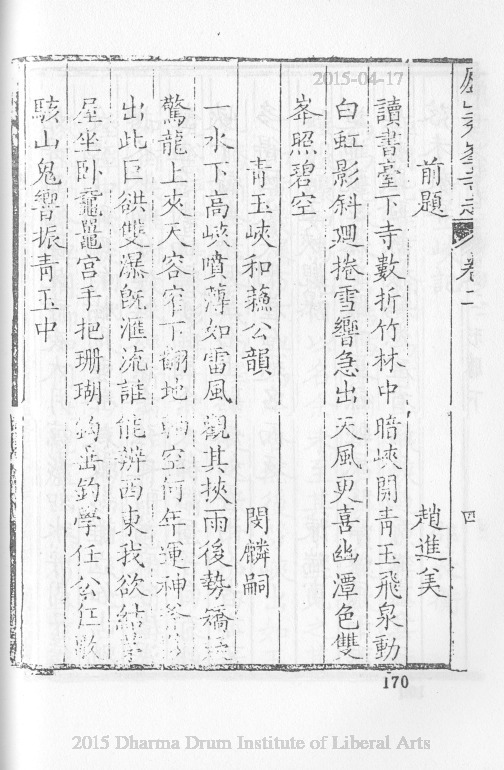 2015-04-17
卷二
四
前題 趙進美
讀書臺下寺數折竹林中暗峽開青玉飛泉動
白虹影斜迴捲雪響急出天風更喜幽潭色雙
峯照碧空
青玉峽和蘓公韻 閔麟嗣
一水下高峽噴薄如雷風觀其挾雨後勢矯
驚龍上夾天容窄下翻地軸空何年運神斧
出此巨谼雙瀑旣滙流誰能辨西東我欲結
屋坐卧黿鼉宫手把珊瑚鈎垂釣學任公
駭山鬼響振青玉中
170
2015 Dharma Drum Institute of Liberal Arts